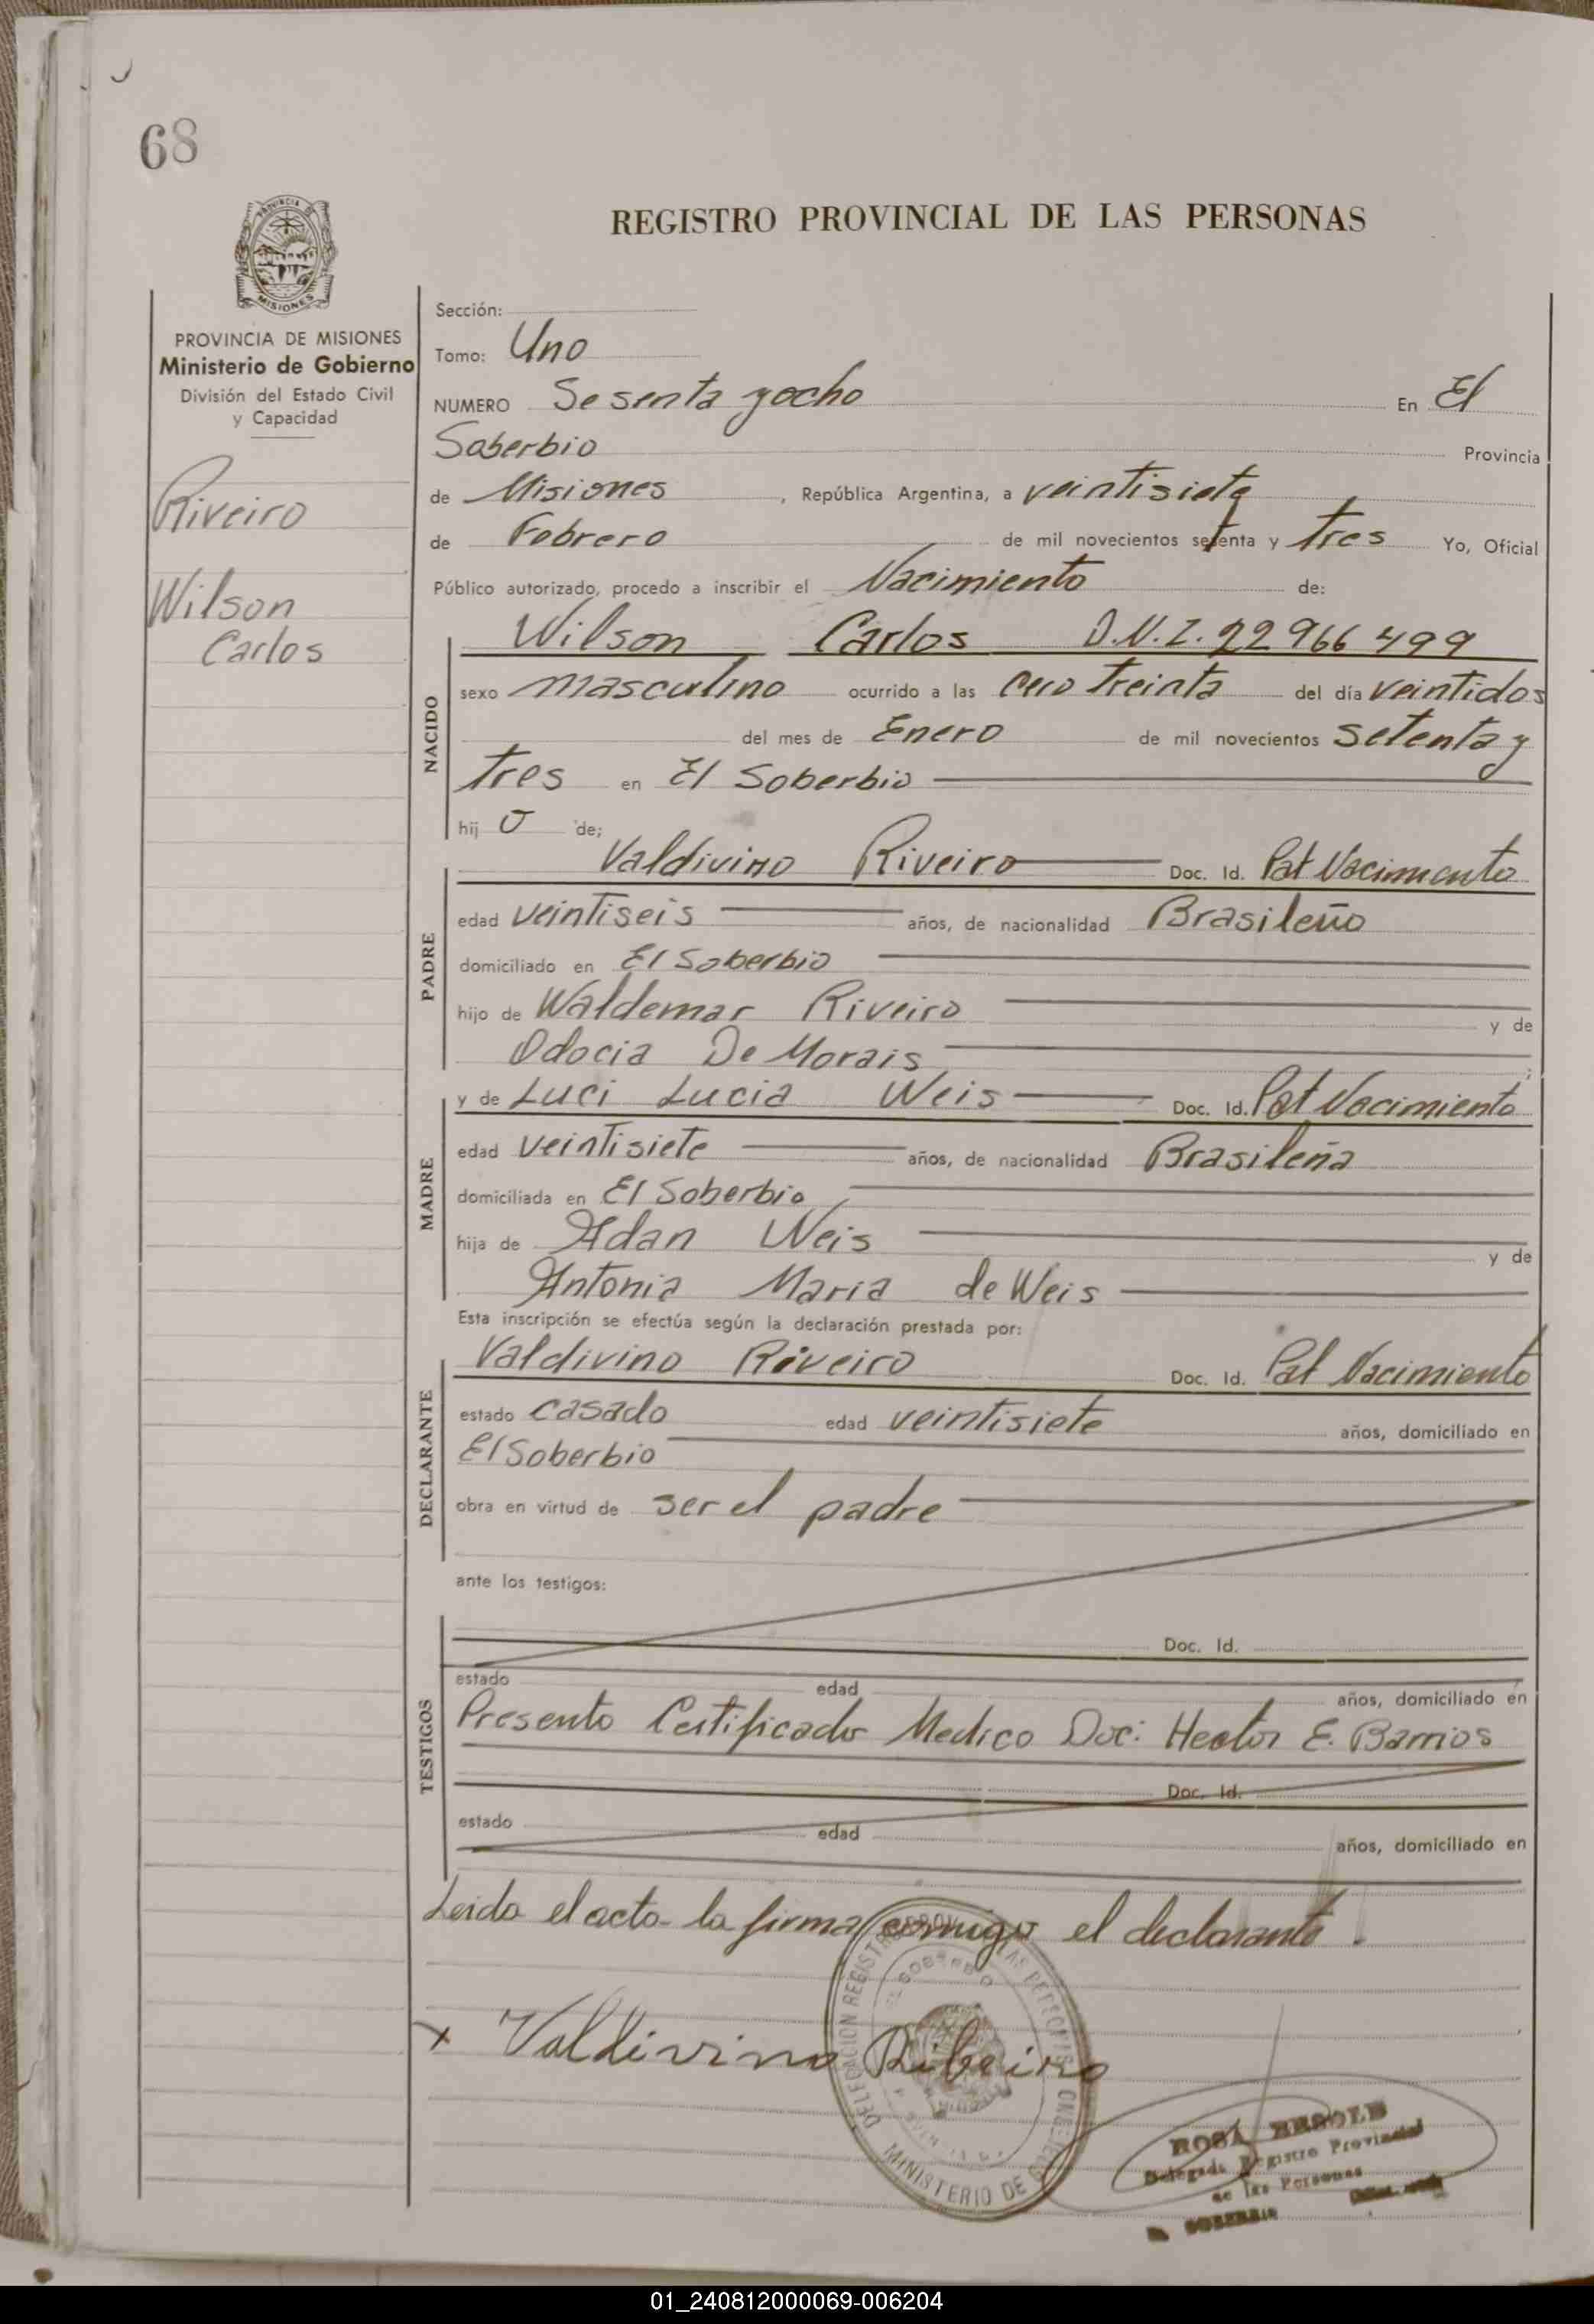 68
PROVINCIA DE
MISIONES
REGISTRO PROVINCIAL DE LAS PERSONAS
PROVINCIA DE MISIONES
Ministerio de Gobierno
División del Estado Civil
y Capacidad
Riveiro
Wilson
Carlos
Sección:
Tomo: Uno
NUMERO Sesenta y ocho En El
Soberbio Provincia
de Misiones , República Argentina, a veintisiete
de Febrero de mil novecientos setenta y tres Yo, Oficial
Público autorizado, procedo a inscribir el Nacimiento de:
NACIDO
Wilson Carlos D.N.I. 22966499
sexo masculino ocurrido a las cero treinta del día veintidos
del mes de Enero de mil novecientos setenta y
tres en El Soberbio
hij o de;
PADRE
Valdivino Riveiro Doc. Id. Pat Nacimento
edad veintiseis años, de nacionalidad Brasileño
domiciliado en El Soberbio
hijo de Waldemar Riveiro y de
Odocia De Morais
MADRE
y de Luci Lucia Weis Doc. Id. Pat Nacimiento
edad veintisiete años, de nacionalidad Brasileña
domiciliada en El Soberbio
hija de Adan Weis y de
Antonia Maria de Weis
Esta inscripción se efectúa según la declaración prestada por:
DECLARANTE
Valdivino Riveiro Doc. Id. Pat Nacimiento
estado casado edad veintisiete años, domiciliado en
El Soberbio
obra en virtud de ser el padre
ante los testigos:
TESTIGOS
Doc. Id.
estado edad años, domiciliado en
Presento Certificado Medico Doc: Hector E. Barrios
Doc. Id.
estado edad años, domiciliado en
Leida el acta la firma comigo el declarante.
x Valdivino Ribeiro
DELEGACION REGISTRO
EL SOBERBIO
MINISTERIO DE
ROSA
Delegada Registro Provincial
de las Personas
SOBERBIO
01_240812000069-006204